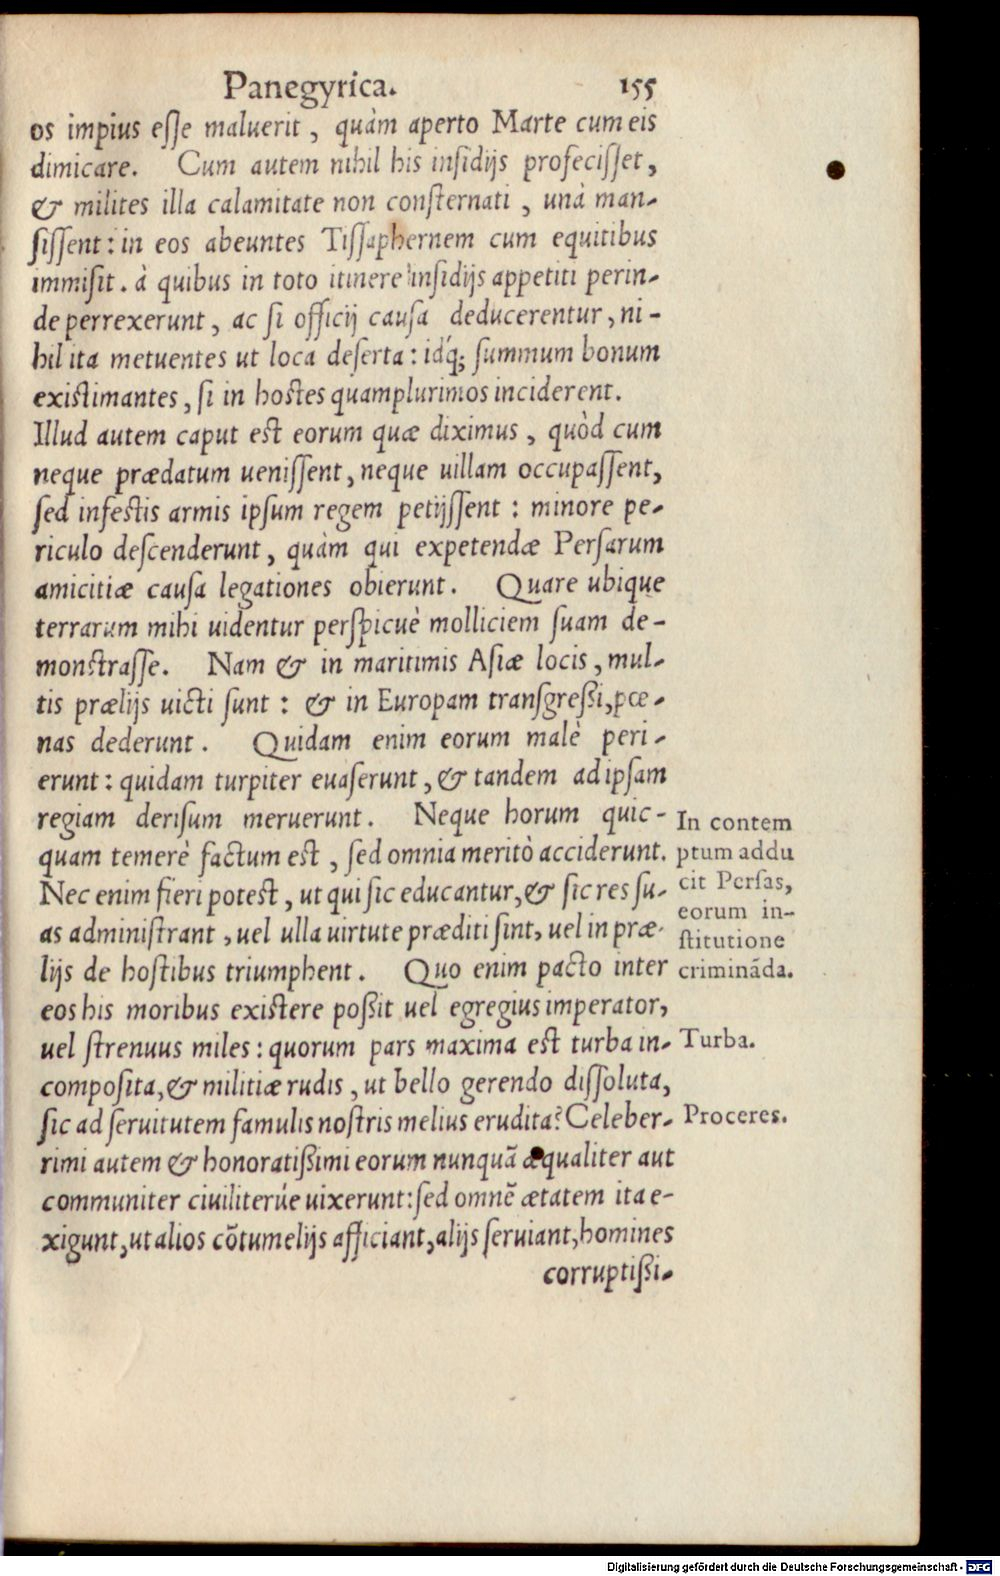 Panegyrica. 155
os impius eſſe maluerit, quàm aperto Marte cum eis
dimicare. Cum autem nihil his inſidijs profeciſſet,
& milites illa calamitate non conſternati, unà man-
ſiſſent: in eos abeuntes Tiſſaphernem cum equitibus
immiſit. à quibus in toto itinere inſidijs appetiti perin-
de perrexerunt, ac ſi officij cauſa deducerentur, ni-
hil ita metuentes ut loca deſerta: idq́; ſummum bonum
existimantes, ſi in hostes quamplurimos inciderent.
Illud autem caput est eorum quæ diximus, quòd cum
neque prædatum ueniſſent, neque uillam occupaſſent,
ſed infestis armis ipſum regem petijſſent: minore pe-
riculo deſcenderunt, quàm qui expetendæ Perſarum
amicitiæ cauſa legationes obierunt. Quare ubique
terrarum mihi uidentur perſpicuè molliciem ſuam de-
monstraſſe. Nam & in maritimis Aſiæ locis, mul-
tis prælijs uicti ſunt: & in Europam tranſgreßi, pœ-
nas dederunt. Quidam enim eorum malè peri-
erunt: quidam turpiter euaſerunt, & tandem ad ipſam
regiam deriſum meruerunt. Neque horum quic-
quam temerè factum est, ſed omnia meritò acciderunt.
Nec enim fieri potest, ut qui ſic educantur, & ſic res ſu-
as adminiſtrant, uel ulla uirtute præditi ſint, uel in præ-
lijs de hoſtibus triumphent. Quo enim pacto inter
eos his moribus existere poßit uel egregius imperator,
uel ſtrenuus miles: quorum pars maxima est turba in-
compoſita, & militiæ rudis, ut bello gerendo diſſoluta,
ſic ad ſeruitutem famulis noſtris melius erudita? Celeber-
rimi autem & honoratißimi eorum nunquã æqualiter aut
communiter ciuiliterúe uixerunt: ſed omnẽ ætatem ita e-
xigunt, ut alios cõtumelijs afficiant, alijs ſeruiant, homines
corruptißi-
In contem
ptum addu
cit Perſas,
eorum in-
ſtitutione
criminãda.
Turba.
Proceres.
Digitalisierung gefördert durch die Deutsche Forschungsgemeinschaft - DFG